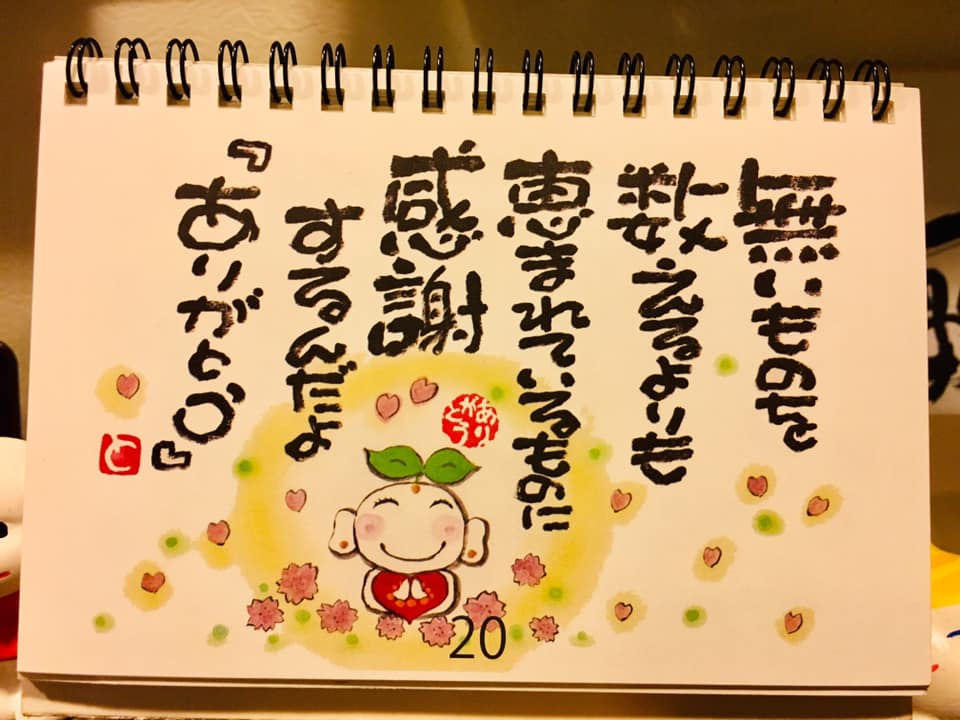 無いものを
数えるよりも
恵まれているものに
感謝
するんだよ
『ありがとう』
ありがとう
と
20